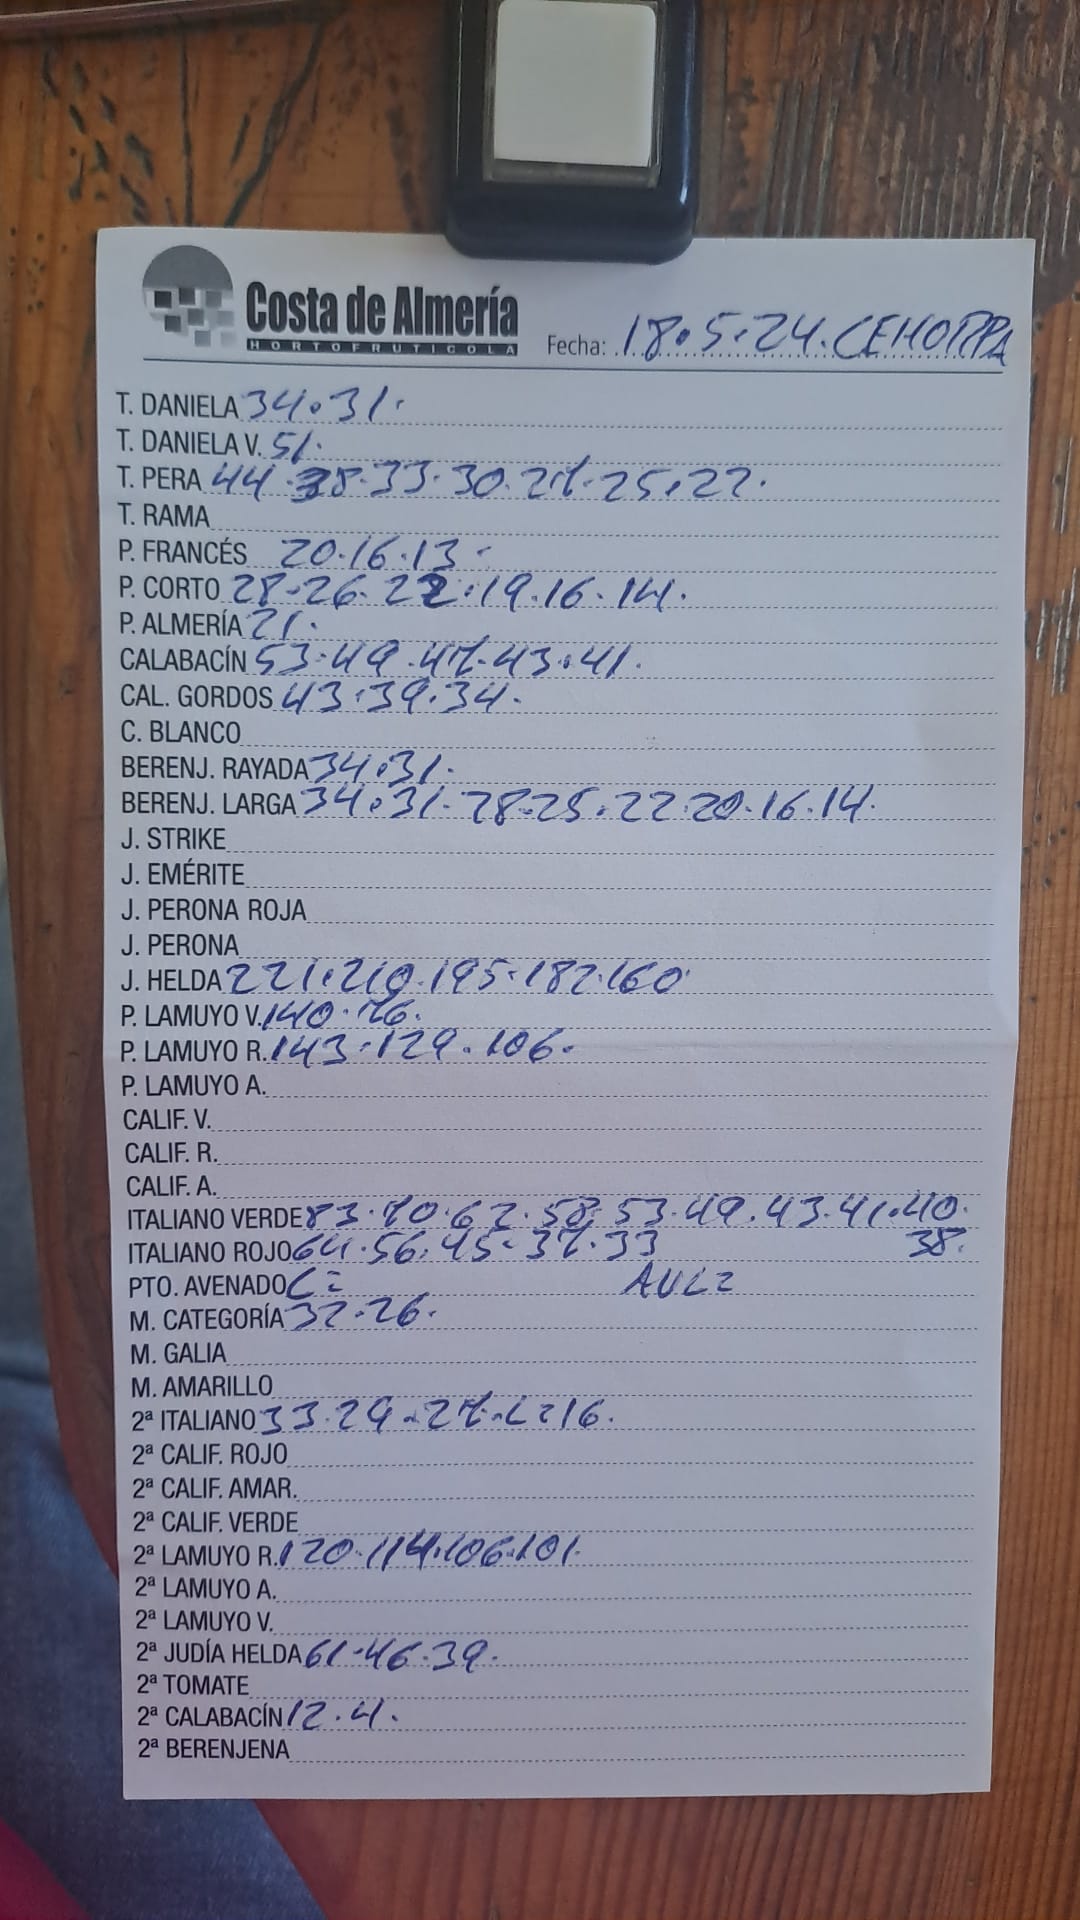 Costa de Almería
HORTOFRUTICOLA
Fecha: 18.5.24. CEHORPA
T. DANIELA 34.31.
T. DANIELA V. 51.
T. PERA 44.38.33.30.27.25.22.
T. RAMA
P. FRANCÉS 20.16.13.
P. CORTO 28.26.22.19.16.14.
P. ALMERÍA 21.
CALABACÍN 53.49.47.43.41.
CAL. GORDOS 43.39.34.
C. BLANCO
BERENJ. RAYADA 34.31.
BERENJ. LARGA 34.31.28.25.22.20.16.14.
J. STRIKE
J. EMÉRITE
J. PERONA ROJA
J. PERONA
J. HELDA 221.210.195.182.160
P. LAMUYO V. 140.76.
P. LAMUYO R. 143.129.106.
P. LAMUYO A.
CALIF. V.
CALIF. R.
CALIF. A.
ITALIANO VERDE 83.70.62.58.53.49.43.41.40.
ITALIANO ROJO 64.56.45.37.33 38.
PTO. AVENADO
M. CATEGORÍA 32.26.
M. GALIA
M. AMARILLO
2ª ITALIANO 33.29.27. 16.
2ª CALIF. ROJO
2ª CALIF. AMAR.
2ª CALIF. VERDE
2ª LAMUYO R. 120.114.106.101.
2ª LAMUYO A.
2ª LAMUYO V.
2ª JUDÍA HELDA 61.46.39.
2ª TOMATE
2ª CALABACÍN 12.4.
2ª BERENJENA